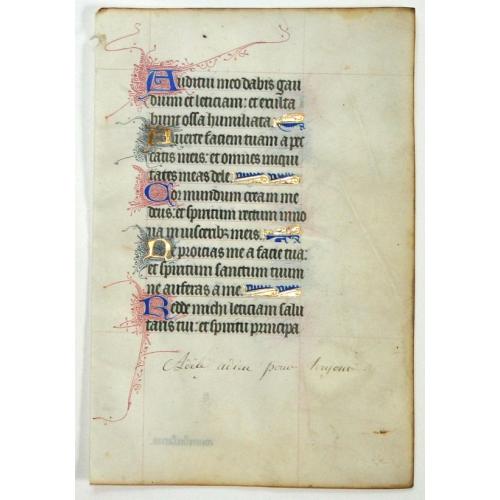 Auditui meo dabis gau
dium et leticiam: et exulta
bunt ossa humiliata.
Auerte faciem tuam a pec
catis meis: et omnes iniqui
tates meas dele.
Cor mundum crea in me
deus: et spiritum rectum inno
ua in uisceribus meis.
Ne proicias me a facie tua:
et spiritum sanctum tuum
ne auferas a me.
Redde michi leticiam salu
taris tui: et spiritu principa
adieu pour toujours